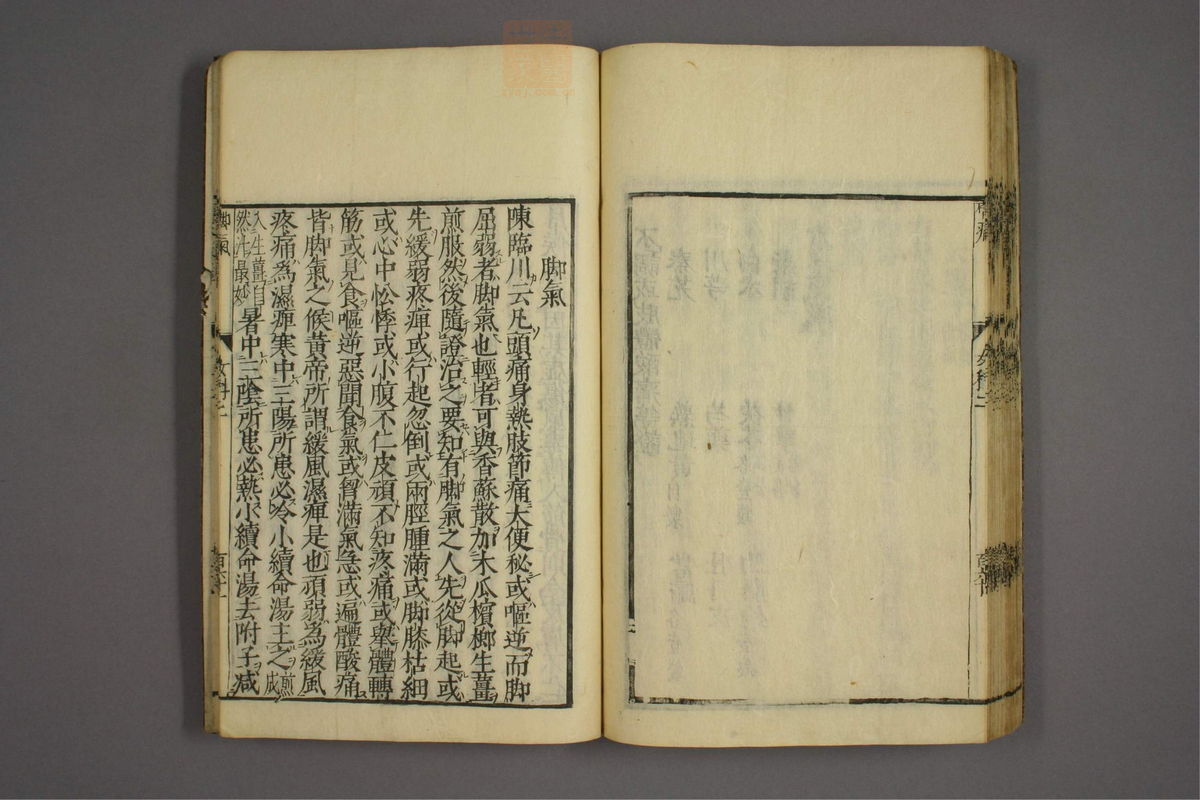 脚氣
陳臨川云凡頭痛身熱肢節痛大便秘或嘔逆而脚
屈弱者脚氣也輕者可與香蘇散加木瓜檳榔生薑
煎服然後隨證治之要知有脚氣之人先從脚起或
先緩弱疼痺或行起忽倒或兩脛腫滿或脚膝枯細
或心中忪悸或小腹不仁皮頑不知疼痛或舉體轉
筋或見食嘔逆惡聞食氣或胷滿氣急或遍體酸痛
皆脚氣之候黃帝所謂緩風濕痺是也頑弱為緩風
疼痛為濕痺寒中三陽所患必冷小續命湯主之煎成
入生薑自然汁最妙暑中三陰所患必熱小續命湯去附子减